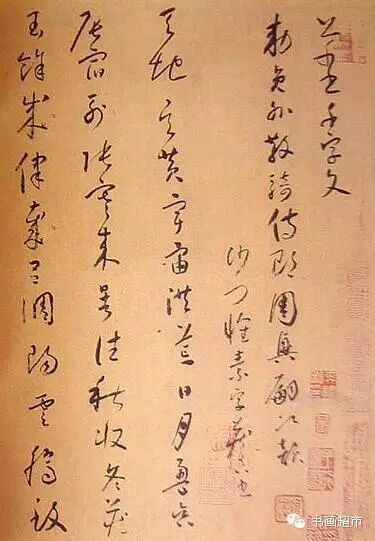 草書千字文
勅員外散騎侍郎周興嗣次韻
沙門懷素字藏真書
天地玄黃宇宙洪荒日月盈昃
辰宿列張寒來暑往秋收冬藏
閏餘成律歲呂調陽雲騰致
书画超市